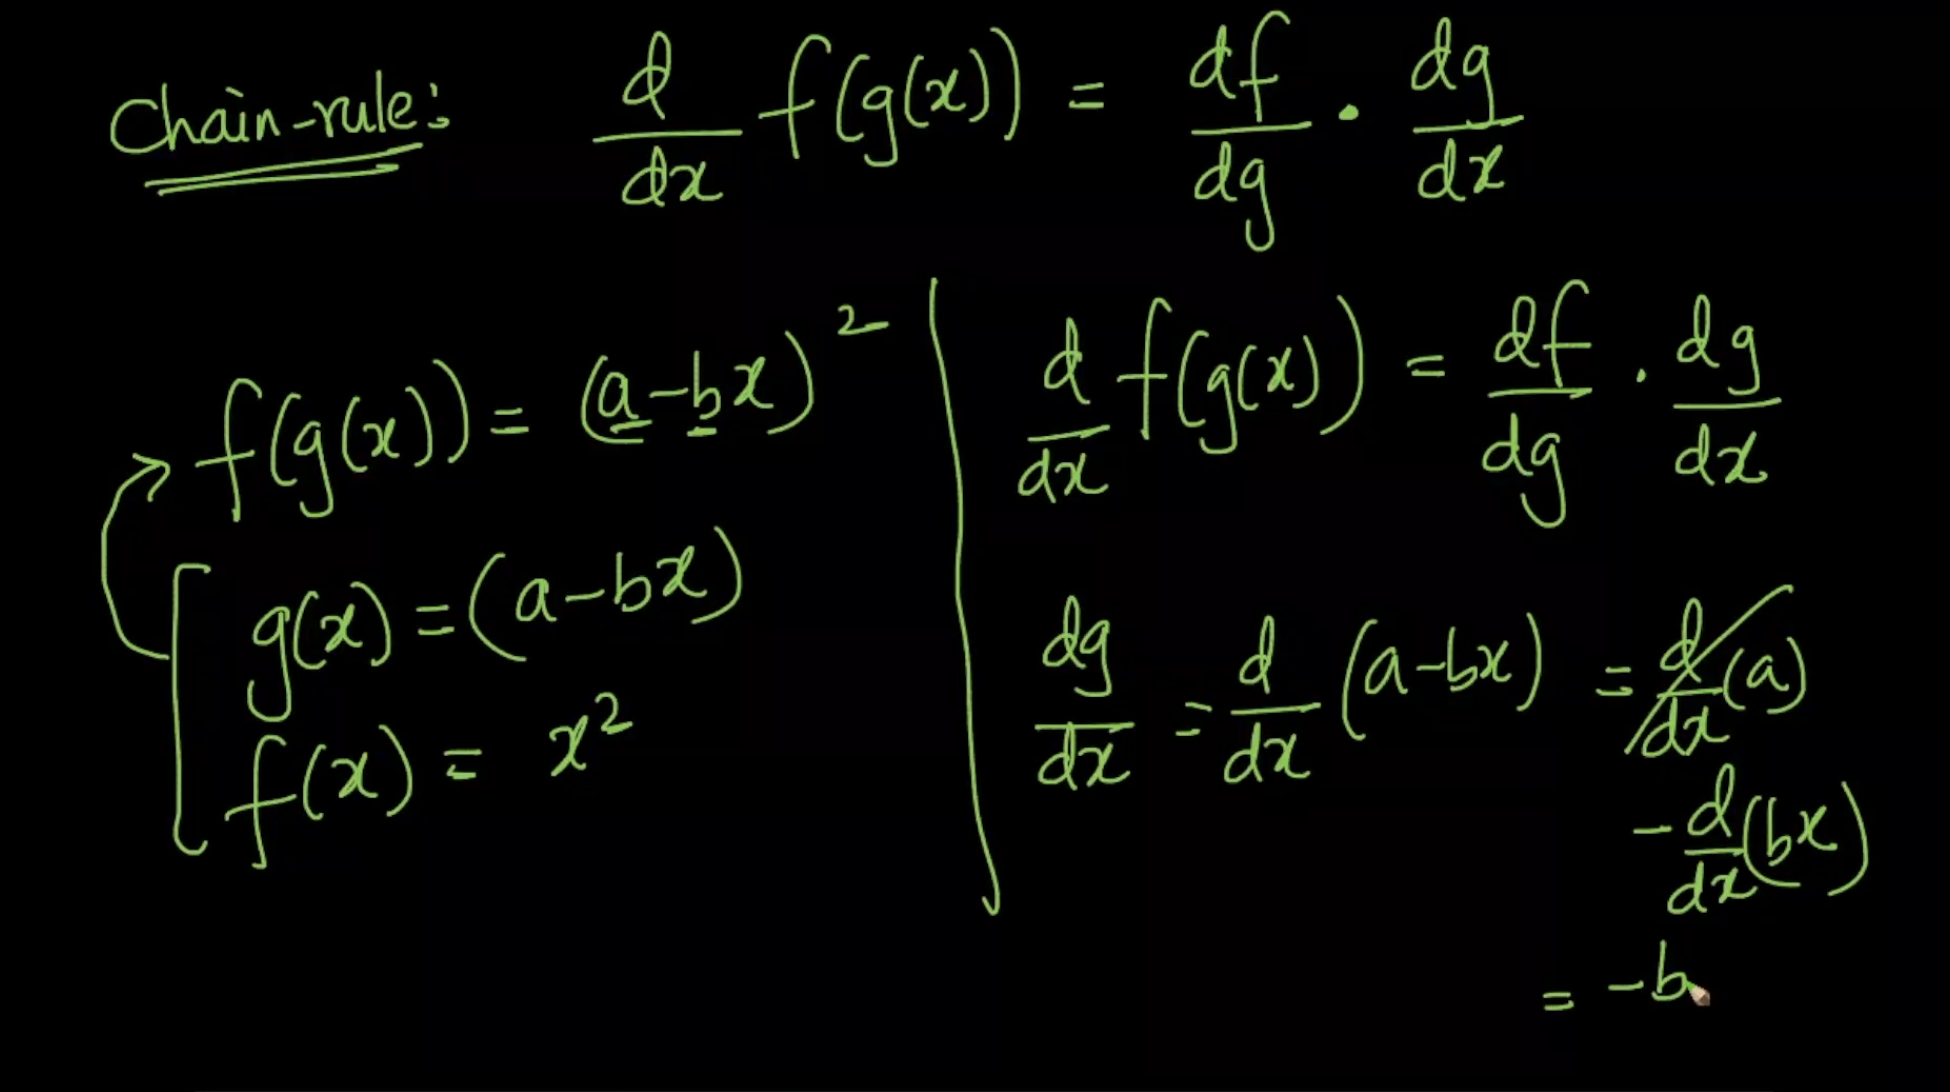 Chain-rule: d/dx f(g(x)) = df/dg · dg/dx
f(g(x)) = (a-bx)²
g(x) = (a-bx)
f(x) = x²
d/dx f(g(x)) = df/dg · dg/dx
dg/dx = d/dx (a-bx) = d/dx (a)
- d/dx (bx)
= -b